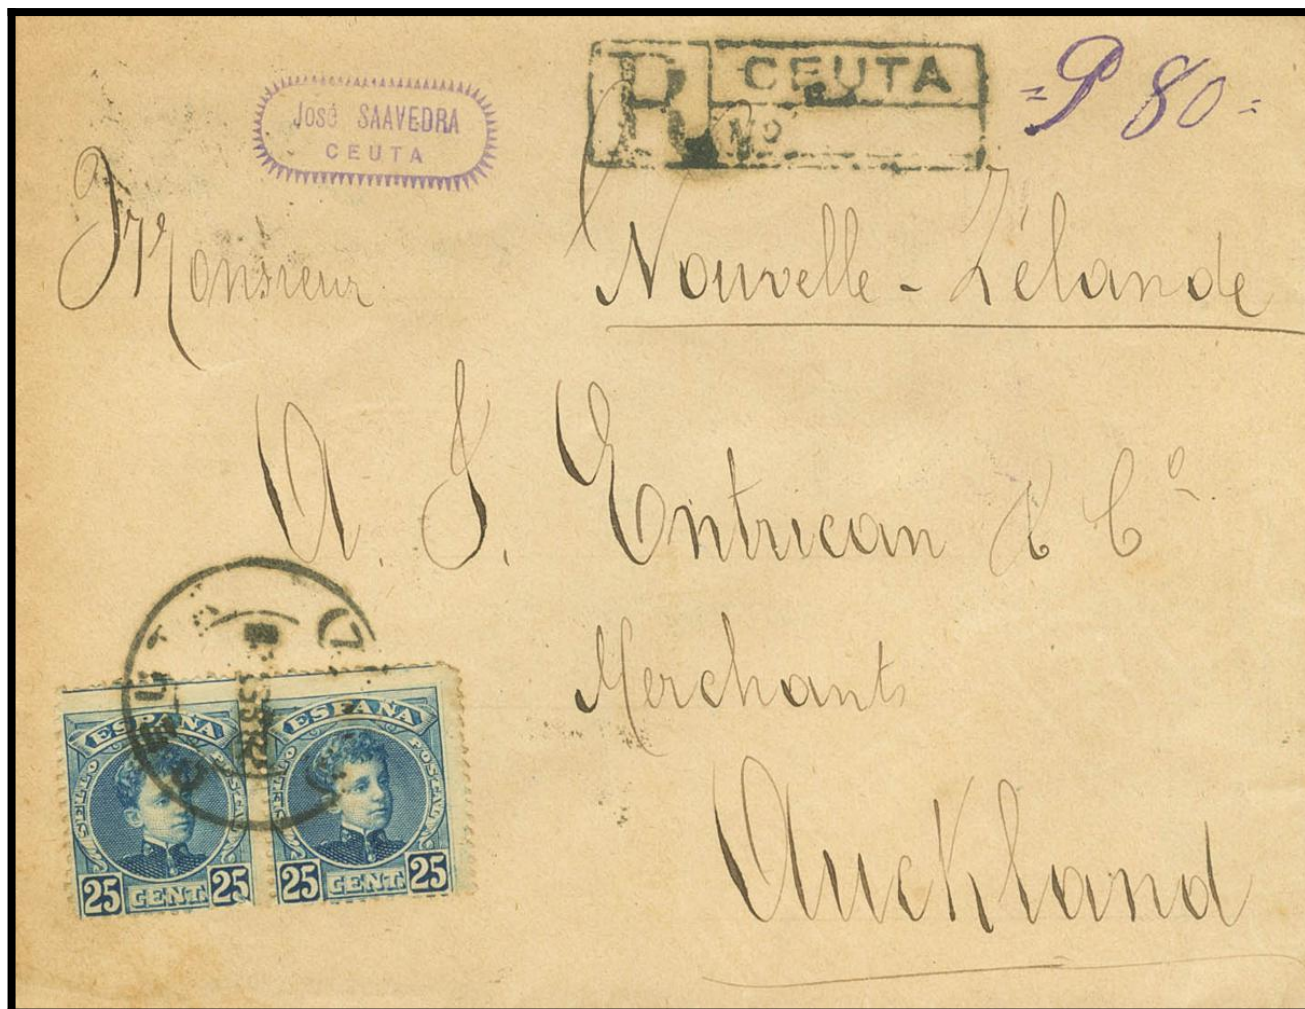 José SAAVEDRA
CEUTA
R CEUTA
Nº
=P 80=
Monsieur
Nouvelle-Zélande
A. J. Entrican & Cº
Merchants
Auckland
CEUTA
ESPAÑA
CORREO POSTAL
25 CENT. 25
ESPAÑA
CORREO POSTAL
25 CENT. 25